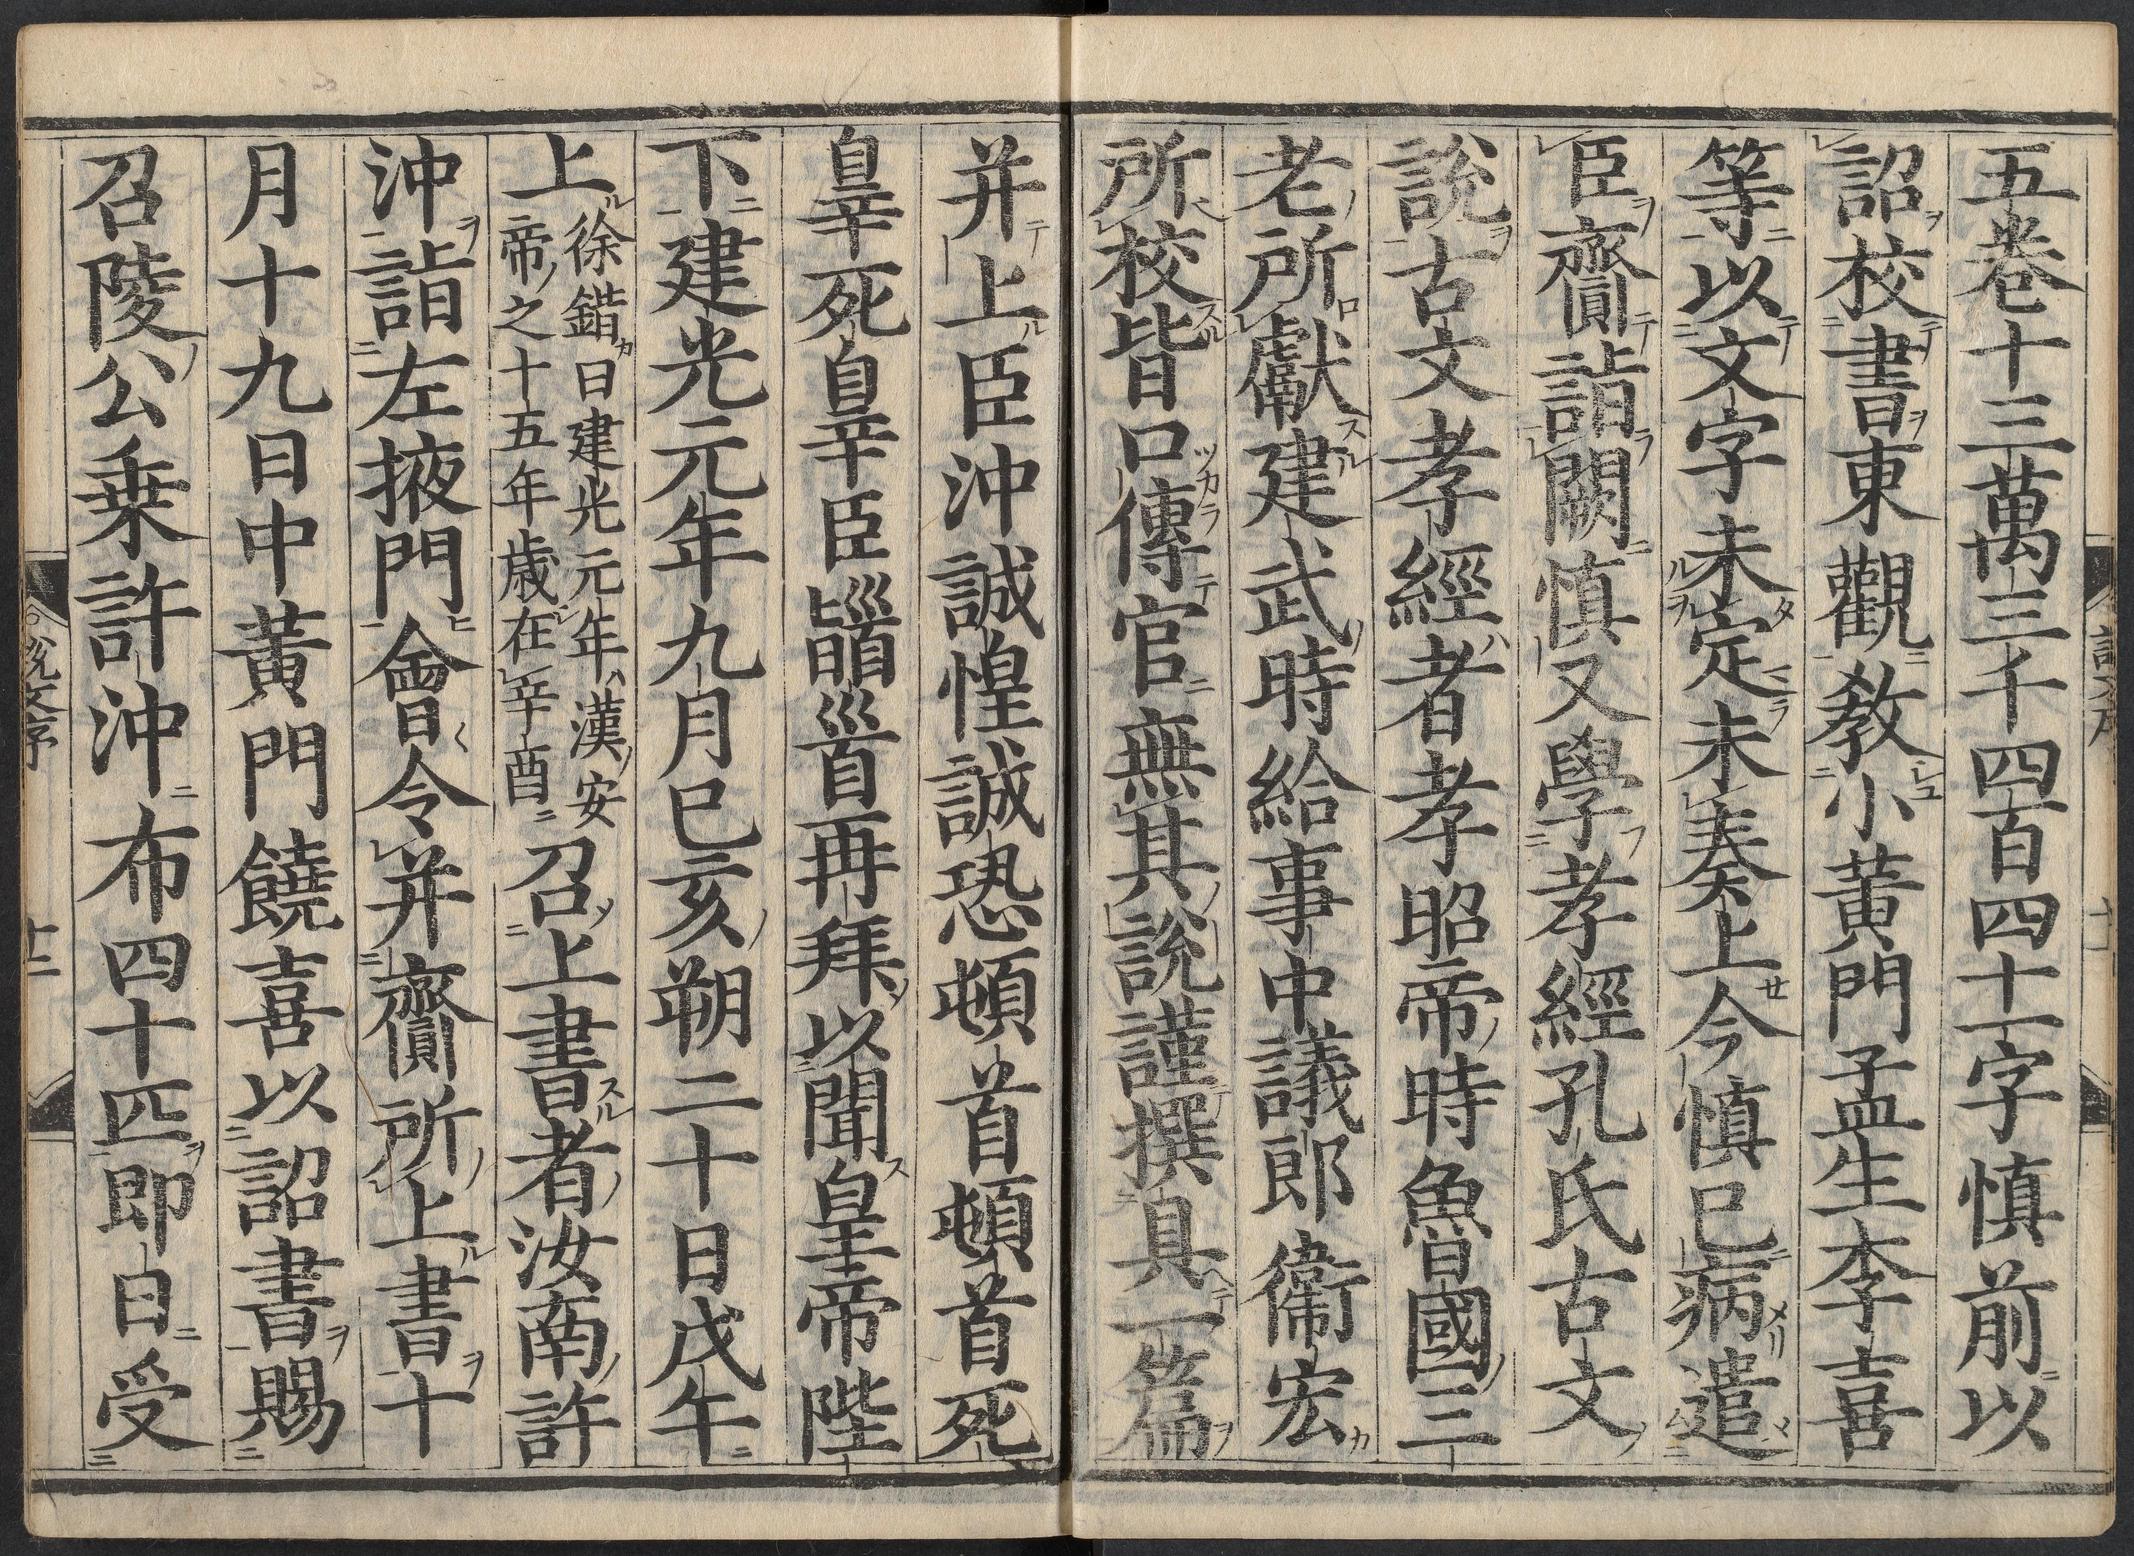 五卷十三萬三千四百四十一字慎前以
詔校書東觀教小黃門孟生李喜
等以文字未定未奏上今慎已病遣
臣齎詣闕慎又學孝經孔氏古文
說古文孝經者孝昭帝時魯國三
老所獻建武時給事中議郎衛宏
所校皆口傳官無其說謹撰具一篇
并上臣沖誠惶誠恐頓首頓首死
辠死辠臣𩒨首再拜以聞皇帝陛
下建光元年九月己亥朔二十日戊午
上徐鍇曰建光元年漢安帝之十五年歲在辛酉召上書者汝南許
沖詣左掖門會令并齎所上書十
月十九日中黃門饒喜以詔書賜
召陵公乗許沖布四十匹即日受
說文序
十二